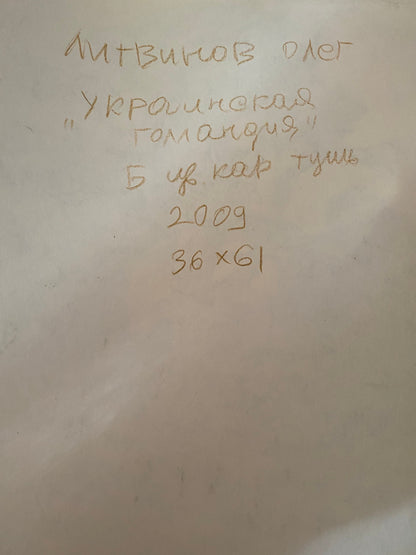 Литвинов Олег
"Украинская
голландия"
Б цв кар тушь
2009
36x61